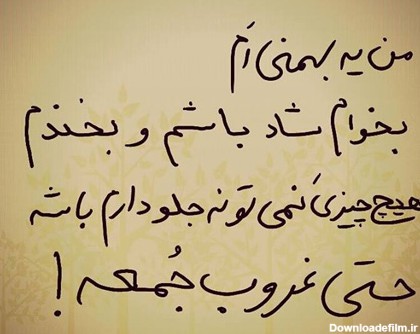 من یه بهمنی اَم
بخوام شاد باشم و بخندم
هیچ چیزی نمی تونه جلودارم باشه
حتی غروب جُمعه !
Downloadefilm.ir